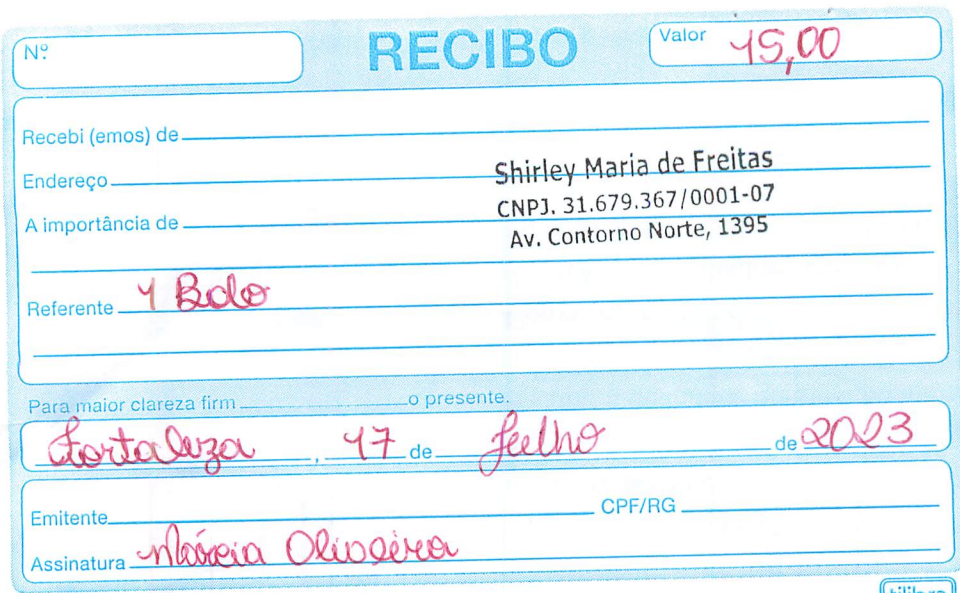 Nº
RECIBO
Valor 15,00
Recebi (emos) de
Endereço
Shirley Maria de Freitas
CNPJ. 31.679.367/0001-07
A importância de
Av. Contorno Norte, 1395
Referente 1 Bolo
Para maior clareza firm o presente.
Fortaleza, 17 de Julho de 2023
Emitente CPF/RG
Assinatura Márcia Oliveira